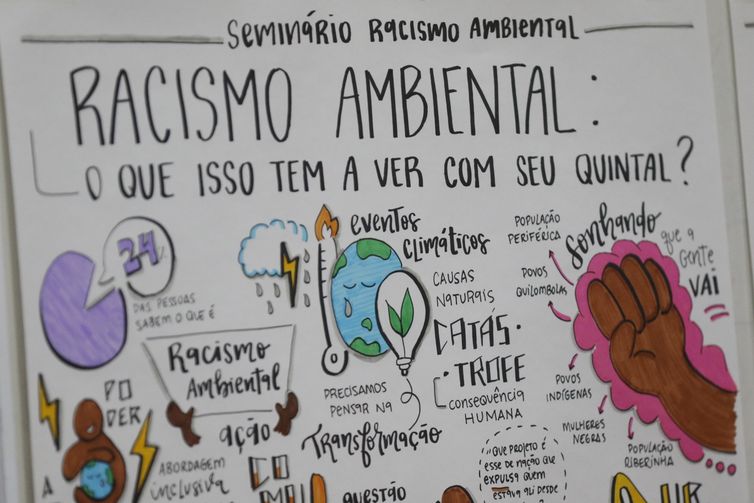 Seminário Racismo Ambiental
RACISMO AMBIENTAL:
O QUE ISSO TEM A VER COM SEU QUINTAL?
24%
DAS PESSOAS
SABEM O QUE É
Racismo
Ambiental
PODER
A
ação
ABORDAGEM
inclusiva
eventos
climáticos
CAUSAS
NATURAIS
CATÁS-
TROFE
CONSEQUÊNCIA
HUMANA
PRECISAMOS
PENSAR NA
Transformação
"QUE PROJETO É
ESSE DE NAÇÃO QUE
EXPULSA QUEM
ESTAVA ALI DESDE
QUESTÃO
Sonhando
que a
gente
VAI
POPULAÇÃO
PERIFÉRICA
POVOS
QUILOMBOLAS
POVOS
INDÍGENAS
MULHERES
NEGRAS
POPULAÇÃO
RIBEIRINHA